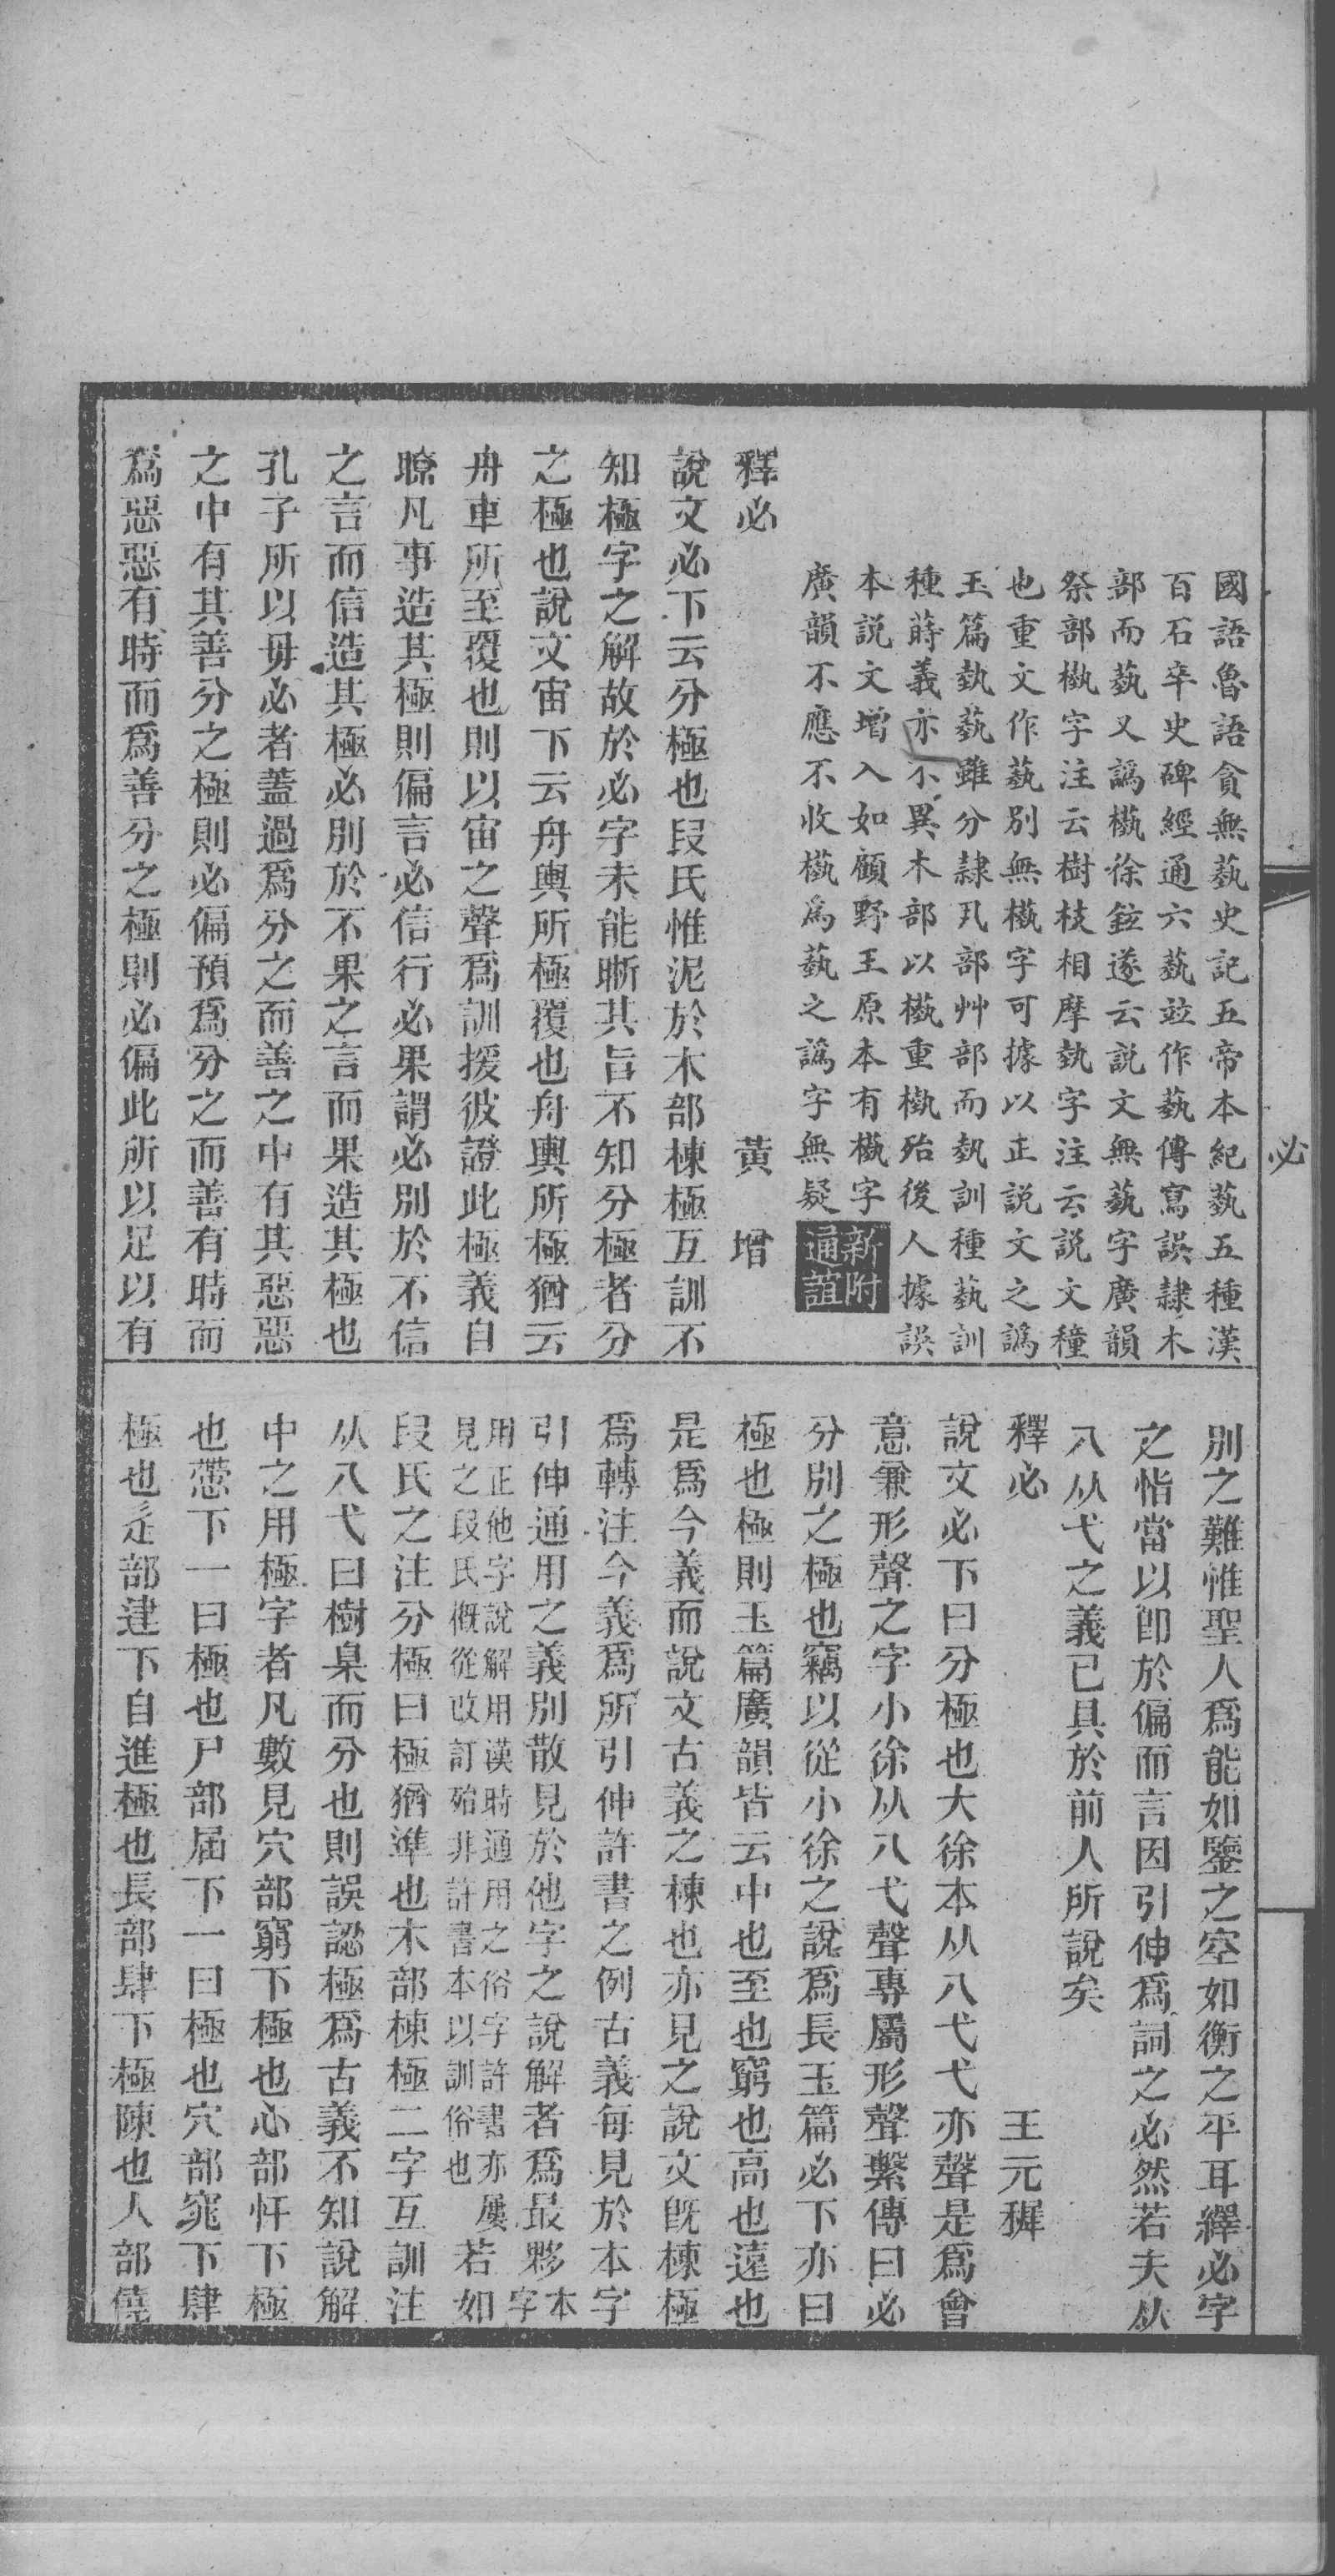 必
國語魯語貪無藝史記五帝本紀藝五種漢
百石卒史碑經通六藝竝作藝傳寫誤隸木
部而藝又譌檥徐鉉遂云説文無藝字廣韻
祭部槸字注云樹枝相摩埶字注云説文種
也重文作藝別無檥字可據以正説文之譌
玉篇埶藝雖分隸丮部艸部而埶訓種藝訓
種蒔義亦不異木部以檥重槸殆後人據誤
本説文增入如顧野王原本有檥字
廣韻不應不收檥爲藝之譌字無疑
新附
通誼
釋必　黃增
說文必下云分極也段氏惟泥於木部棟極互訓不
知極字之解故於必字未能晰其旨不知分極者分
之極也說文宙下云舟輿所極覆也舟輿所極猶云
舟車所至覆也則以宙之聲爲訓援彼證此極義自
瞭凡事造其極則偏言必信行必果謂必別於不信
之言而信造其極必別於不果之言而果造其極也
孔子所以毋必者蓋過爲分之而善之中有其惡惡
之中有其善分之極則必偏預爲分之而善有時而
爲惡惡有時而爲善分之極則必偏此所以足以有
別之難惟聖人爲能如鑒之空如衡之平耳繹必字
之恉當以卽於偏而言因引伸爲詞之必然若夫从
八从弋之義已具於前人所說矣
釋必　王元穉
說文必下曰分極也大徐本从八弋弋亦聲是爲會
意兼形聲之字小徐从八弋聲專屬形聲繫傳曰必
分別之極也竊以從小徐之說爲長玉篇必下亦曰
極也極則玉篇廣韻皆云中也至也窮也高也遠也
是爲今義而說文古義之棟也亦見之說文旣棟極
爲轉注今義爲所引伸許書之例古義每見於本字
引伸通用之義別散見於他字之說解者爲最夥本字
用正他字說解用漢時通用之俗字許書亦屢
見之段氏槪從改訂殆非許書本以訓俗也若如
段氏之注分極曰極猶準也木部棟極二字互訓注
从八弋曰樹臬而分也則誤認極爲古義不知說解
中之用極字者凡數見穴部窮下極也心部忓下極
也㦅下一曰極也尸部屆下一曰極也穴部窕下肆
極也辵部建下自進極也長部肆下極陳也人部僥